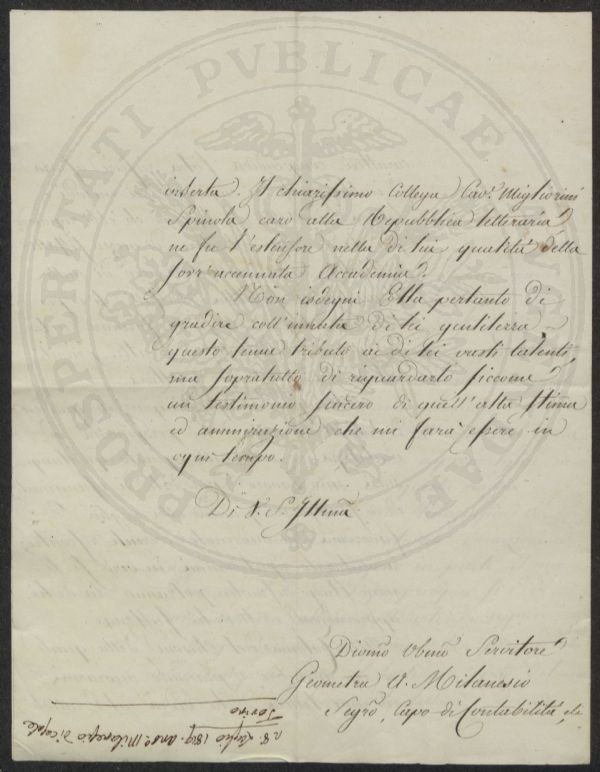 inserta. Il chiarissimo Collega Cav.e Migliorini
Spinola caro alla Repubblica letteraria,
ne fu l'estensore nella di lui qualità della
sovr'accennata Accademia.
Non isdegni Ella pertanto di
gradire coll'innata di Lei gentilezza
questo tenue tributo ai di Lei vasti talenti,
ma sopratutto di riguardarlo siccome
un testimonio sincero di quell'alta stima
ed ammirazione che mi farà essere in
ogni tempo.
Di V. S. Illma
Divmo Obmo Servitore
Geometra A. Milanesio
Segro, Capo di Contabilità, etc
Torino
28. Luglio 1849. Milanesio
PROSPERITATI PVBLICAE